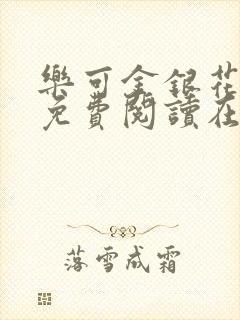 樂可金銀花
免費閱讀在
落雪成霜